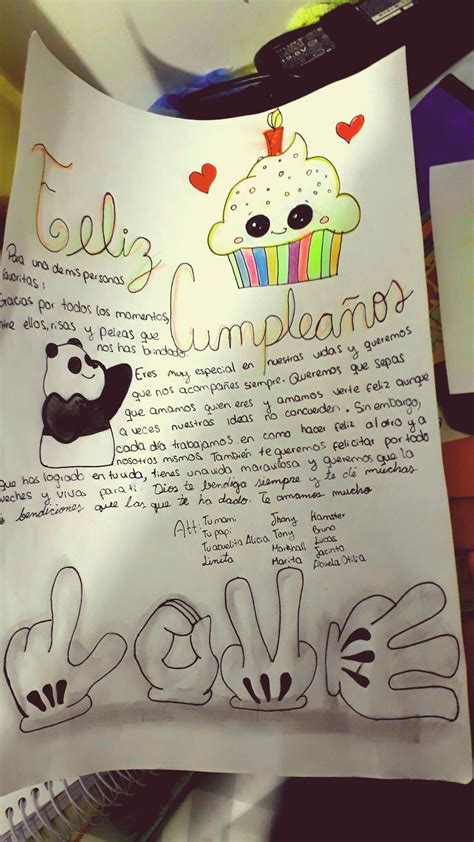 Feliz
Cumpleaños
Para una de mis personas
favoritas:
Gracias por todos los momentos,
entre ellos, risas y peleas que
nos has brindado.
Eres muy especial en nuestras vidas y queremos
que nos acompañes siempre. Queremos que sepas
que amamos quien eres y amamos verte feliz aunque
a veces nuestras ideas no concuerden. Sin embargo,
cada día trabajamos en como hacer feliz al otro y a
nosotros mismos. También te queremos felicitar por todo
que has logrado en tu vida, tienes una vida maravillosa y queremos que la
y vivas para ti. Dios te bendiga siempre y te dé muchas
bendiciones que las que te ha dado. Te amamos mucho
Att: Tu mami Jhony Hamster
Tu papi Tony Bruno
Tu abuelita Alicia Lucas
Linita Marshall Jacinto
Marita Abuela Otilia
LOVE